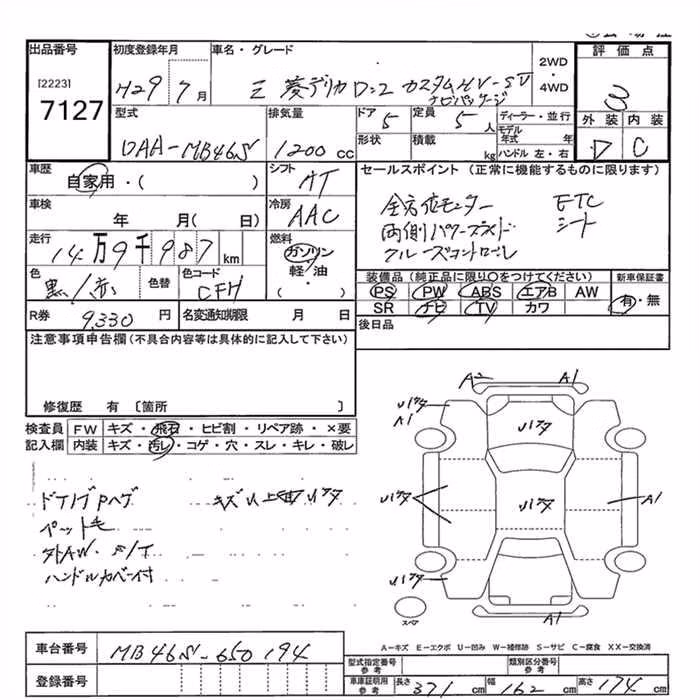 出品番号
[2223]
7127
初度登録年月
H29年7月
車名・グレード
三菱デリカD:2 カスタムHV-SV
ナビパッケージ
2WD
・
4WD
評価点
3
外装 内装
D C
型式
DAA-MB46S
排気量
1200 cc
ドア 5
形状
定員 5 人
積載 kg
ディーラー・並行
モデル年式 年
ハンドル 左・右
車歴
自家用・( )
シフト
AT
車検
年 月( 日)
冷房
AAC
走行
14万9千987 km
燃料
ガソリン
・
軽・油
・
( )
色
黒/赤
色替
色コード
CFH
R券 9,330 円
名変通知期限 月 日
セールスポイント (正常に機能するものに限ります)
全方位モニター ETC
両側パワースライド シート
クルーズコントロール
装備品(純正品に限り○をつけてください)
新車保証書
PS PW ABS エアB AW
SR ナビ TV カワ
有・無
後日品
注意事項申告欄(不具合内容等は具体的に記入して下さい)
修復歴 有 〔箇所 〕
検査員
記入欄
FW キズ・飛石・ヒビ割・リペア跡・×要
内装 キズ・汚レ・コゲ・穴・スレ・キレ・破レ
ペット毛
ハンドルカバー付
A2 A1
A1
A1
A1
スペア
A-キズ E-エクボ U-凹み W-補修跡 S-サビ C-腐食 XX-交換済
車台番号 MB46S-650194
登録番号
型式指定番号
参考
類別区分番号
参考
車庫証明用
参考
長さ 371 cm 幅 162 cm 高さ 174 cm